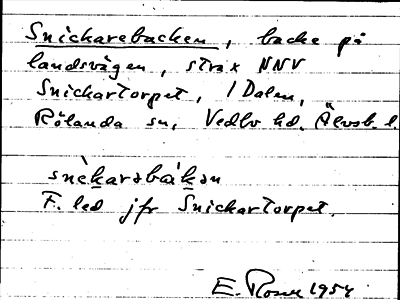 Snickarebacken, backe på
landsvägen, strax NNV
Snickartorpet, i Dalen,
Rölanda sn, Vedbo hd. Älvsb. l.
snèkarəbákən
F. led jfr Snickartorpet.
E. 1954